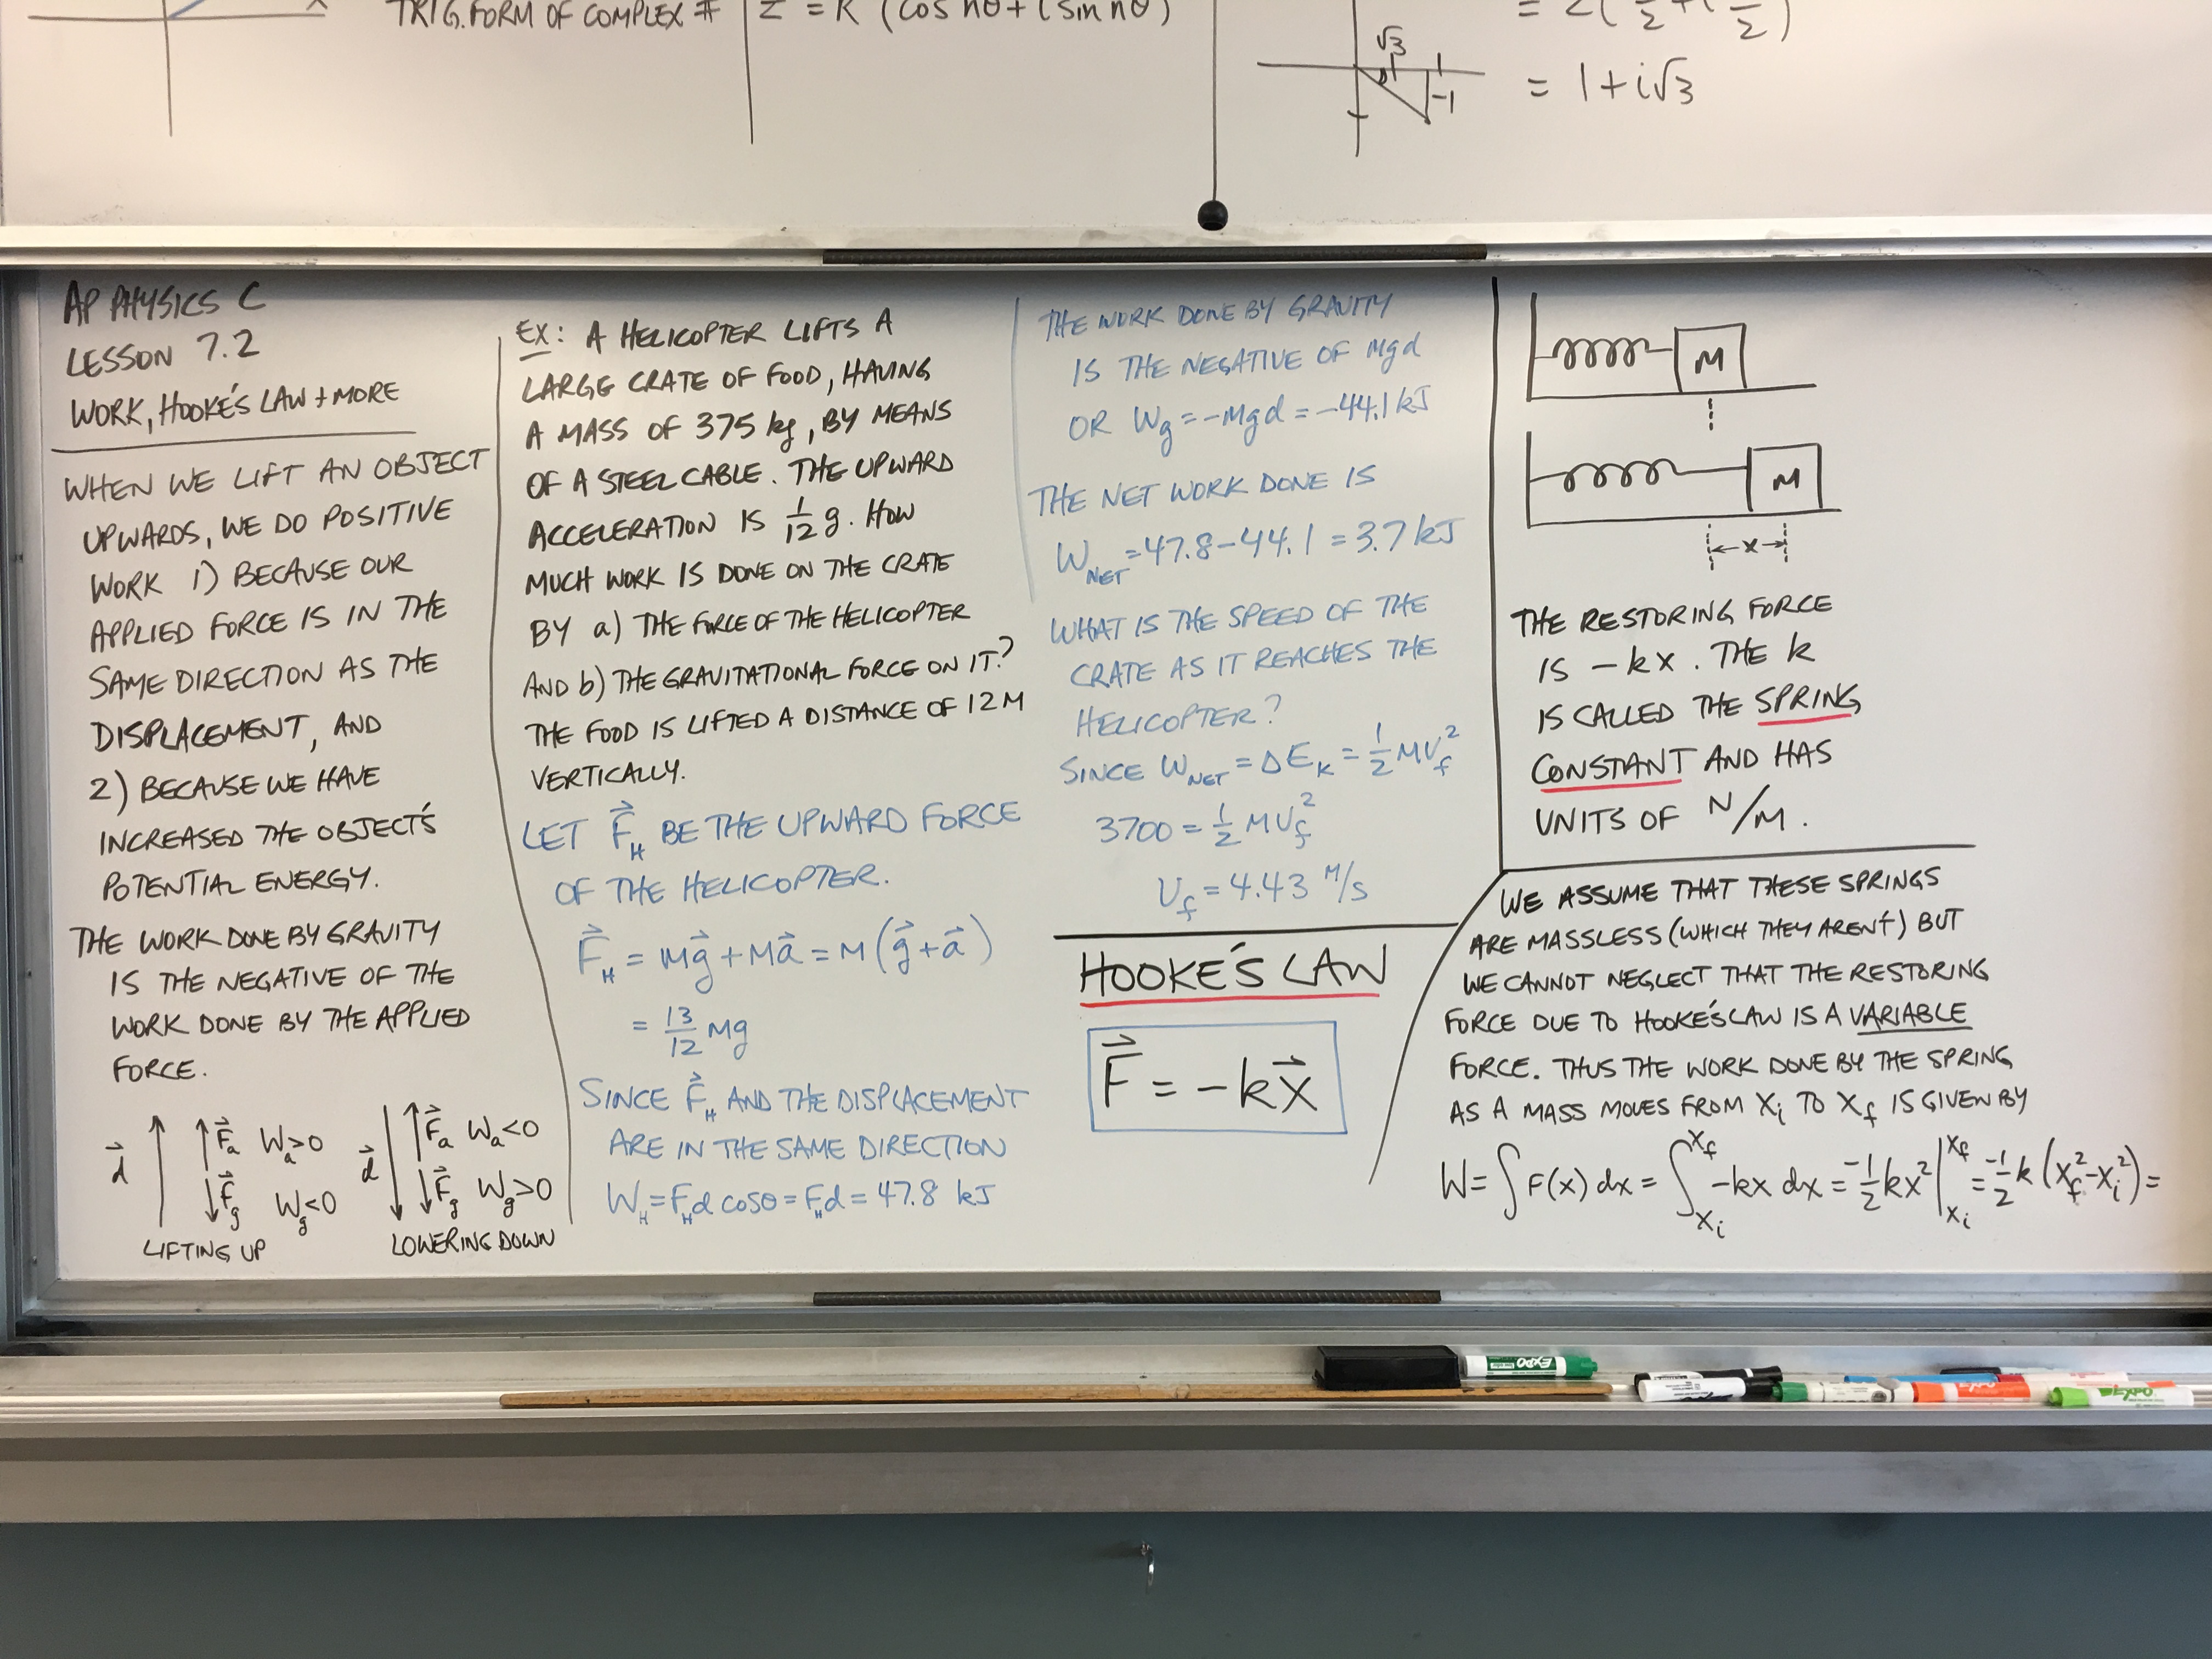 TRIG. FORM OF COMPLEX #
Z = R (cos nθ + i sin nθ)
√3
-1
= 1 + i√3
AP PHYSICS C
LESSON 7.2
WORK, HOOKE'S LAW + MORE
WHEN WE LIFT AN OBJECT
UPWARDS, WE DO POSITIVE
WORK 1) BECAUSE OUR
APPLIED FORCE IS IN THE
SAME DIRECTION AS THE
DISPLACEMENT, AND
2) BECAUSE WE HAVE
INCREASED THE OBJECT'S
POTENTIAL ENERGY.
THE WORK DONE BY GRAVITY
IS THE NEGATIVE OF THE
WORK DONE BY THE APPLIED
FORCE.
d⃗ F⃗a Wa>0
F⃗g Wg<0
LIFTING UP
d⃗ F⃗a Wa<0
F⃗g Wg>0
LOWERING DOWN
EX: A HELICOPTER LIFTS A
LARGE CRATE OF FOOD, HAVING
A MASS OF 375 kg, BY MEANS
OF A STEEL CABLE. THE UPWARD
ACCELERATION IS 1/12 g. HOW
MUCH WORK IS DONE ON THE CRATE
BY a) THE FORCE OF THE HELICOPTER
AND b) THE GRAVITATIONAL FORCE ON IT?
THE FOOD IS LIFTED A DISTANCE OF 12 M
VERTICALLY.
LET F⃗H BE THE UPWARD FORCE
OF THE HELICOPTER.
F⃗H = Mg⃗ + Ma⃗ = M(g⃗+a⃗)
= 13/12 Mg
SINCE F⃗H AND THE DISPLACEMENT
ARE IN THE SAME DIRECTION
WH = FH d cosθ = FH d = 47.8 kJ
THE WORK DONE BY GRAVITY
IS THE NEGATIVE OF Mgd
OR Wg = -Mgd = -44.1 kJ
THE NET WORK DONE IS
WNET = 47.8 - 44.1 = 3.7 kJ
WHAT IS THE SPEED OF THE
CRATE AS IT REACHES THE
HELICOPTER?
SINCE WNET = ΔEK = 1/2 MVf²
3700 = 1/2 MVf²
Vf = 4.43 M/s
HOOKE'S LAW
F⃗ = -kx⃗
M
M
x
THE RESTORING FORCE
IS -kx. THE k
IS CALLED THE SPRING
CONSTANT AND HAS
UNITS OF N/M.
WE ASSUME THAT THESE SPRINGS
ARE MASSLESS (WHICH THEY AREN'T) BUT
WE CANNOT NEGLECT THAT THE RESTORING
FORCE DUE TO HOOKE'S LAW IS A VARIABLE
FORCE. THUS THE WORK DONE BY THE SPRING
AS A MASS MOVES FROM Xi TO Xf IS GIVEN BY
W = ∫F(x) dx = ∫xi^xf -kx dx = -1/2 kx² |xi^xf = -1/2 k (xf² - xi²) =
EXPO